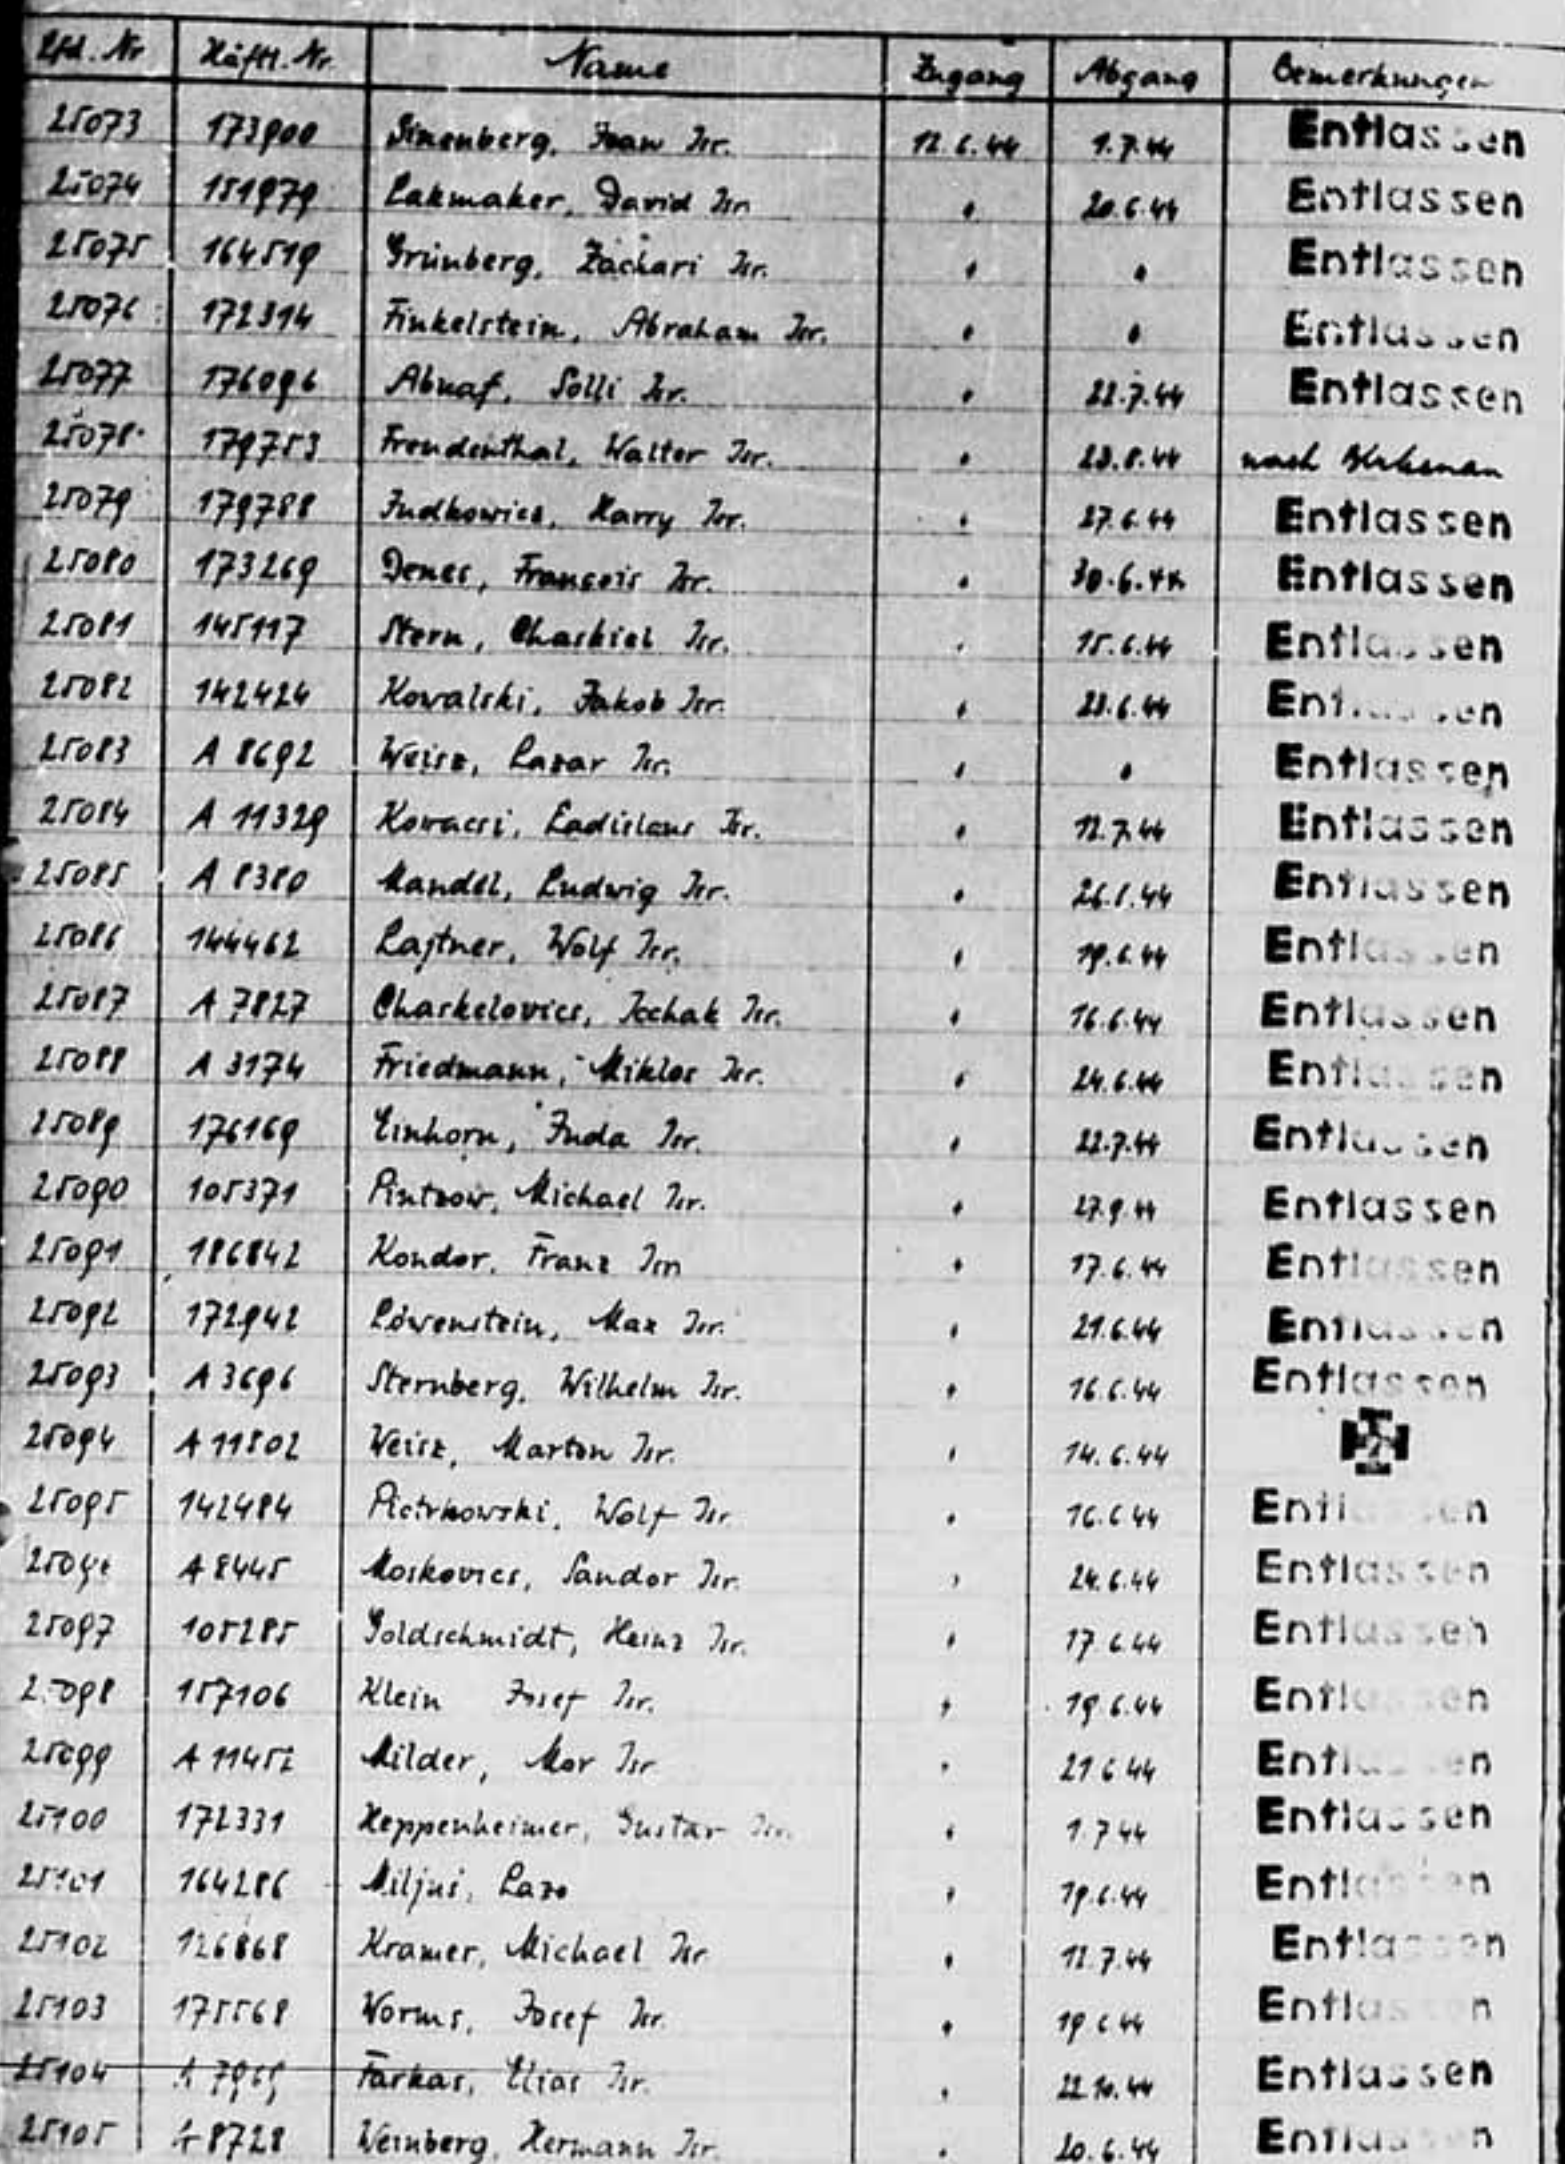 Lfd. Nr Häftl. Nr. Name Zugang Abgang Bemerkungen
25073 173900 Isr. 12.6.44 1.7.44 Entlassen
25074 151979 Lakmaker, David Isr. " 20.6.44 Entlassen
25075 164519 Grünberg, Zachari Isr. " " Entlassen
25076 172314 Finkelstein, Abraham Isr. " " Entlassen
25077 176096 Abuaf, Solli Isr. " 22.7.44 Entlassen
25078 179753 Freudenthal, Walter Isr. " 23.8.44 nach Birkenau
25079 179788 Judkowicz, Harry Isr. " 27.6.44 Entlassen
25080 173269 Denes, François Isr. " 30.6.44 Entlassen
25081 145117 Stern, Chaskiel Isr. " 15.6.44 Entlassen
25082 142424 Kowalski, Jakob Isr. " 23.6.44 Entlassen
25083 A 8692 Weisz, Lazar Isr. " " Entlassen
25084 A 11329 Kovacsi, Ladislaus Isr. " 12.7.44 Entlassen
25085 A 8380 Mandel, Ludwig Isr. " Entlassen
25086 144462 Lajtner, Wolf Isr. " 19.6.44 Entlassen
25087 A 7827 Chaskelovics, Icchak Isr. " 16.6.44 Entlassen
25088 A 3174 Friedmann, Miklos Isr. " 24.6.44 Entlassen
25089 176169 Einhorn, Juda Isr. " 22.7.44 Entlassen
25090 105371 Michael Isr. " 27.9.44 Entlassen
25091 186842 Kondor, Franz Isr. " 17.6.44 Entlassen
25092 172942 Löwenstein, Max Isr. " 21.6.44 Entlassen
25093 A 3696 Sternberg, Wilhelm Isr. " 16.6.44 Entlassen
25094 A 11802 Weisz, Marton Isr. " 14.6.44
25095 142484 Piotrkowski, Wolf Isr. " 16.6.44 Entlassen
25096 A 8445 Moskovics, Sandor Isr. " 24.6.44 Entlassen
25097 105285 Goldschmidt, Heinz Isr. " 17.6.44 Entlassen
25098 157106 Klein Josef Isr. " 19.6.44 Entlassen
25099 A 11452 Milder, Mor Isr " 21 6 44 Entlassen
25100 172331 Heppenheimer, Gustav Isr. " 1.7 44 Entlassen
25101 164286 Miljus, Lazo " 19.6.44 Entlassen
25102 126868 Kramer, Michael Isr " 12.7.44 Entlassen
25103 175568 Worms, Josef Isr. " 19 6 44 Entlassen
25104 Farkas, Elias Isr. " 22.10.44 Entlassen
25105 A 8728 Weinberg, Hermann Isr. " 20.6.44 Entlassen